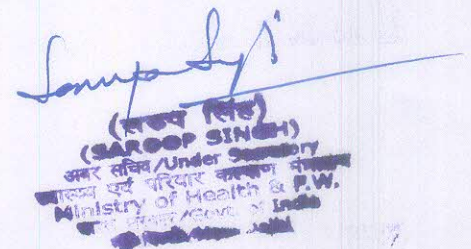 (सरूप सिंह)
(SAROOP SINGH)
अवर सचिव/Under Secretary
स्वास्थ्य एवं परिवार कल्याण मंत्रालय
Ministry of Health & F.W.
भारत सरकार/Govt. of India